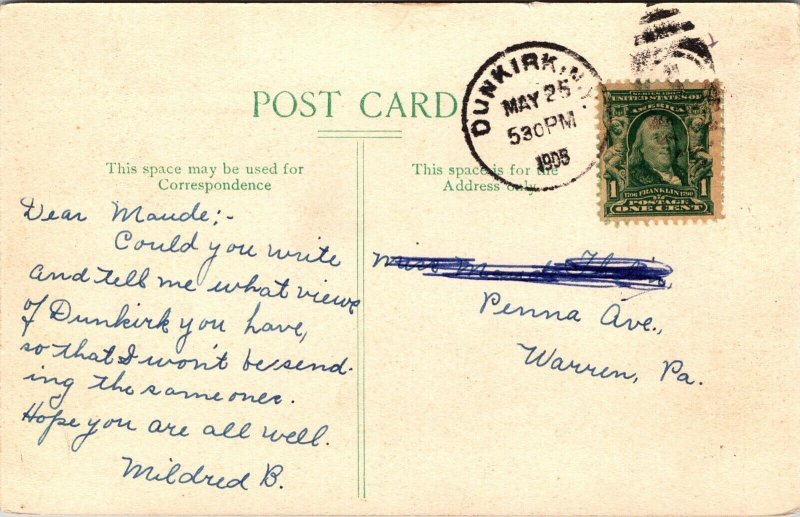 POST CARD
This space may be used for
Correspondence
Dear Maude:-
Could you write
and tell me what views
of Dunkirk you have,
so that I won't be send-
ing the same ones.
Hope you are all well.
Mildred B.
This space is for the
Address only
DUNKIRK, N.Y.
MAY 25
530PM
SERIES 1902
UNITED STATES OF
AMERICA
1 1706 FRANKLIN 1790 1
POSTAGE
ONE CENT
Miss
Penna Ave.,
Warren, Pa.